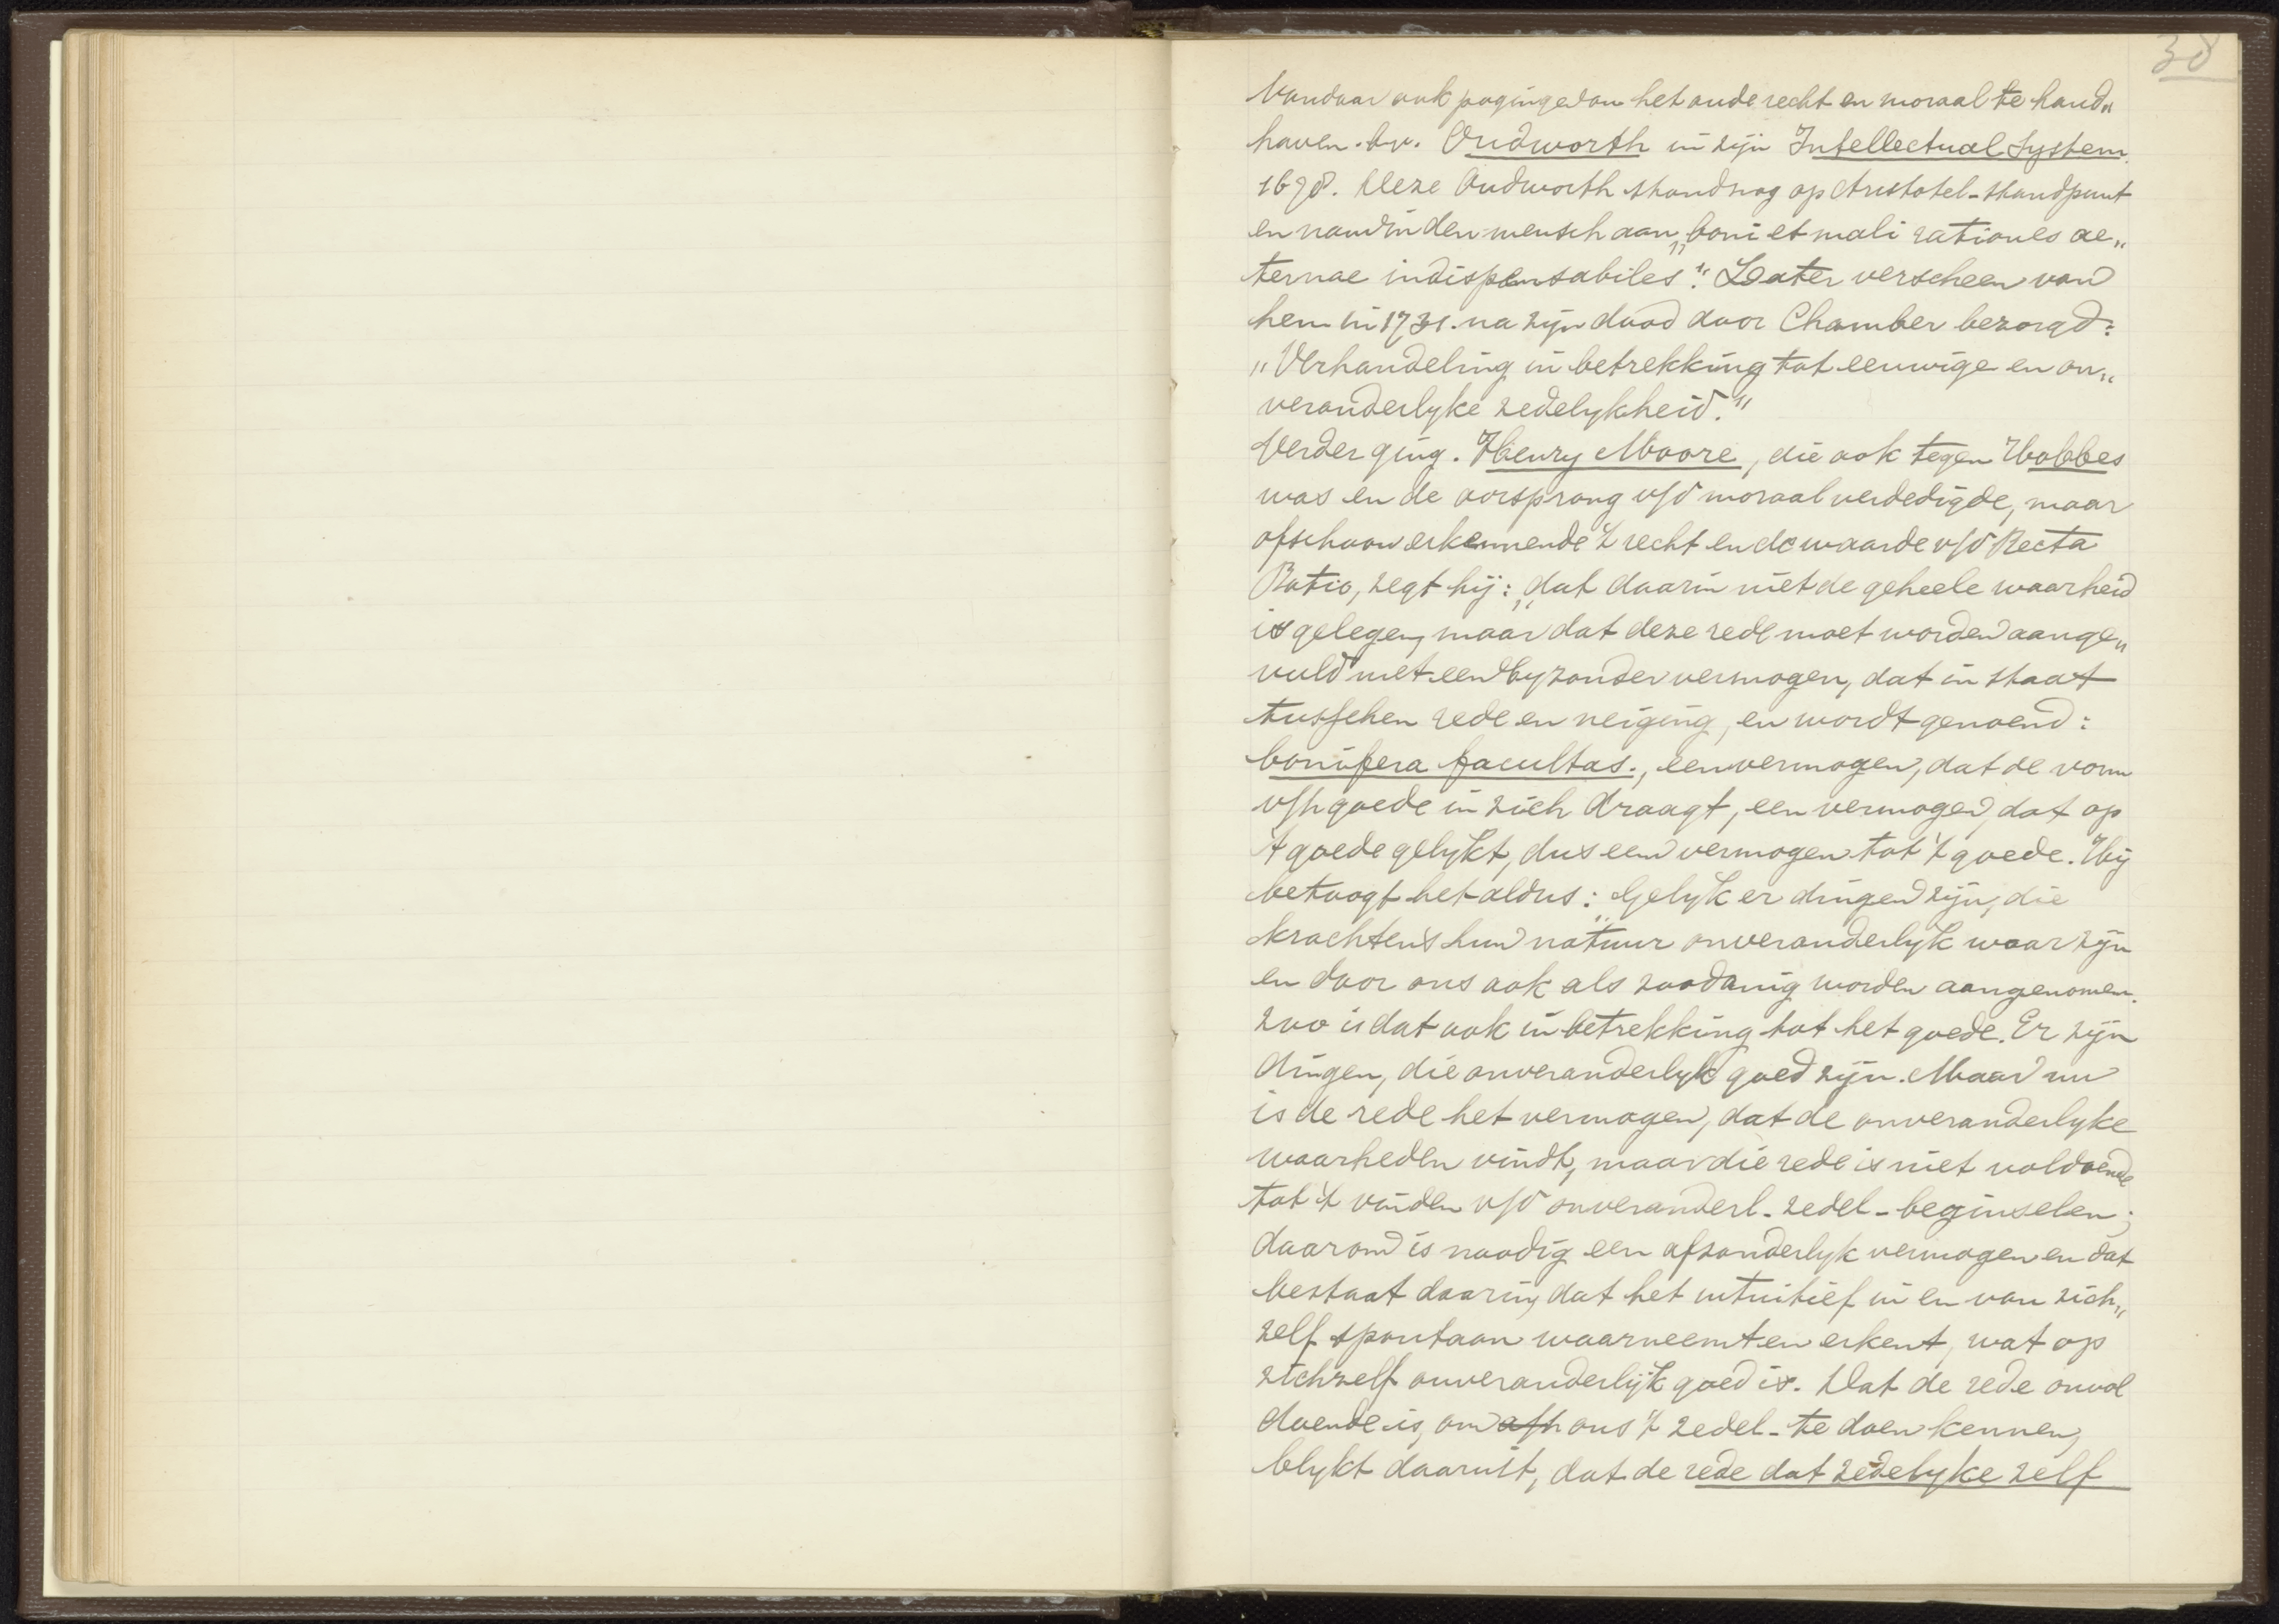 38
Vandaar ook pogingen om het oude recht en moraal te hand„
haven. bv. Cudworth in zijn Intellectual System.
1678. Deze Cudworth stond nog op Aristotel. standpunt
en nam in den mensch aan „boni et mali rationes ae„
ternae indispensabiles". Later verscheen van
hem in 1731. na zijn dood door Chamber bezorgd:
„Verhandeling in betrekking tot eeuwige en on„
veranderlyke zedelykheid."
Verder ging. Henry Moore, die ook tegen Hobbes
was en de oorsprong v/d moraal verdedigde, maar
ofschoon erkennende 't recht en de waarde v/d Recta
Ratio, zegt hij: „dat daarin niet de geheele waarheid
is gelegen, maar dat deze rede moet worden aange„
vuld met een byzonder vermogen, dat in staat
tusschen rede en neiging, en wordt genoemd:
bonifera facultas., een vermogen, dat de vorm
v/h goede in zich draagt, een vermogen, dat op
't goede gelykt, dus een vermogen tot 't goede. Hij
betoogt het aldus: „Gelyk er dingen zijn, die
krachtens hun natuur onveranderlyk waar zijn
en door ons ook als zoodanig worden aangenomen.
zoo is dat ook in betrekking tot het goede. Er zijn
dingen, die onveranderlyk goed zijn. Maar nu
is de rede het vermogen, dat de onveranderlyke
waarheden vindt, maar die rede is niet voldoende
tot 't vinden v/d onveranderl. zedel. beginselen;
daarom is noodig een afzonderlyk vermogen en dat
bestaat daarin, dat het intuitief in en van zich„
zelf spontaan waarneemt en erkent, wat op
zichzelf onveranderlijk goed is. Dat de rede onvol
doende is, om afh ons 't zedel. te doen kennen,
blykt daaruit, dat de rede dat zedelyke zelf